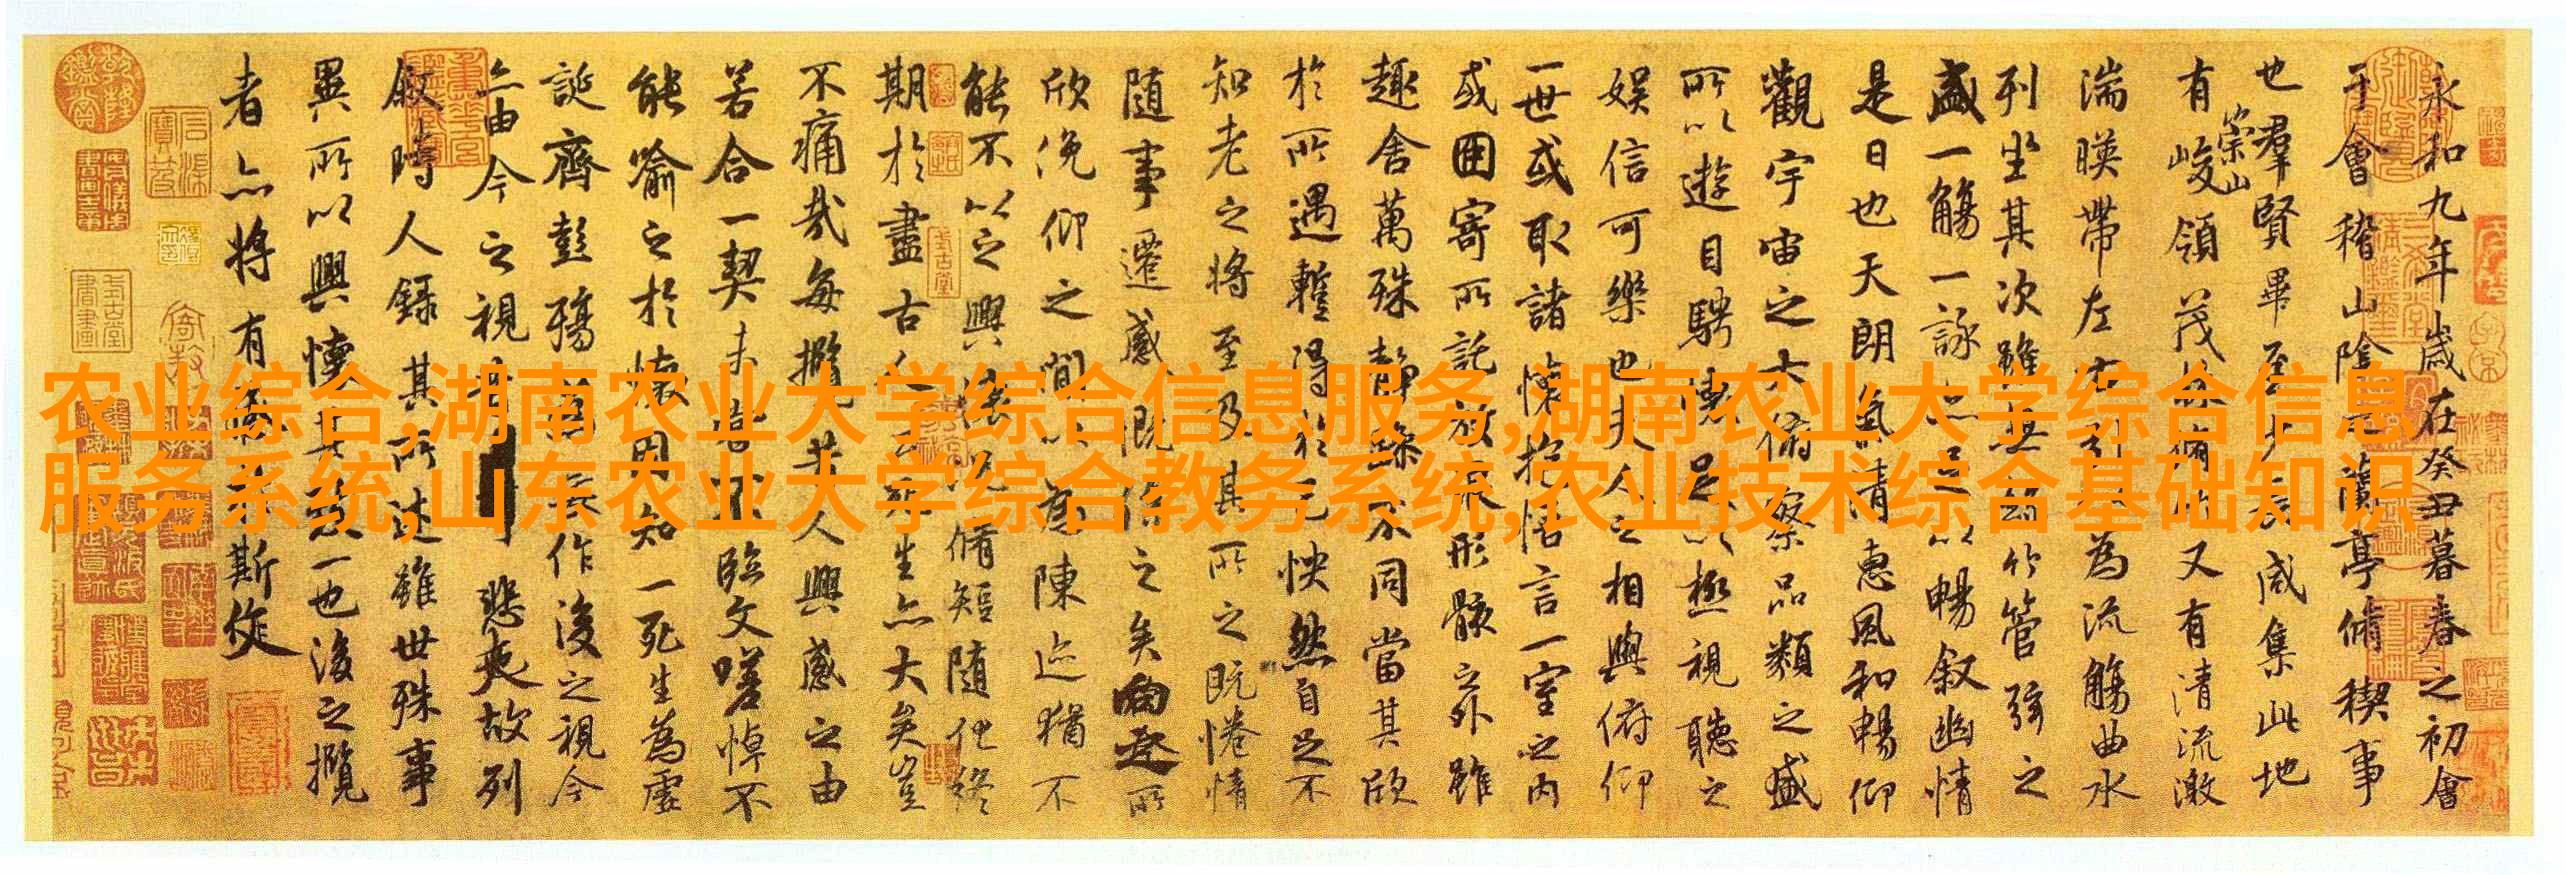 永和九年歲在癸丑暮春之初會
于會稽山陰之蘭亭脩稧事
也羣賢畢至少長咸集此地
有崇山峻領茂林脩竹又有清流激
湍暎帶左右引以為流觴曲水
列坐其次雖無絲竹管弦之
盛一觴一詠亦足以暢叙幽情
是日也天朗氣清惠風和暢仰
觀宇宙之大俯察品類之盛
所以遊目騁懷足以極視聽之
娛信可樂也夫人之相與俯仰
一世或取諸懷抱悟言一室之內
或因寄所託放浪形骸之外雖
趣舍萬殊靜躁不同當其欣
於所遇蹔得於己怏然自足不
知老之將至及其所之既惓情
隨事遷感慨係之矣向之所
欣俛仰之閒以為陳迹猶不
能不以之興懷況脩短隨化終
期於盡古人云死生亦大矣豈
不痛哉每攬昔人興感之由
若合一契未嘗不臨文嗟悼不
能喻之於懷固知一死生為虛
誕齊彭殤為妄作後之視今
亦由今之視昔悲夫故列
叙時人錄其所述雖世殊事
異所以興懷其致一也後之攬
者亦將有感於斯文
农业综合,湖南农业大学综合信息服务,湖南农业大学综合信息
服务系统,山东农业大学综合教务系统,农业技术综合基础知识